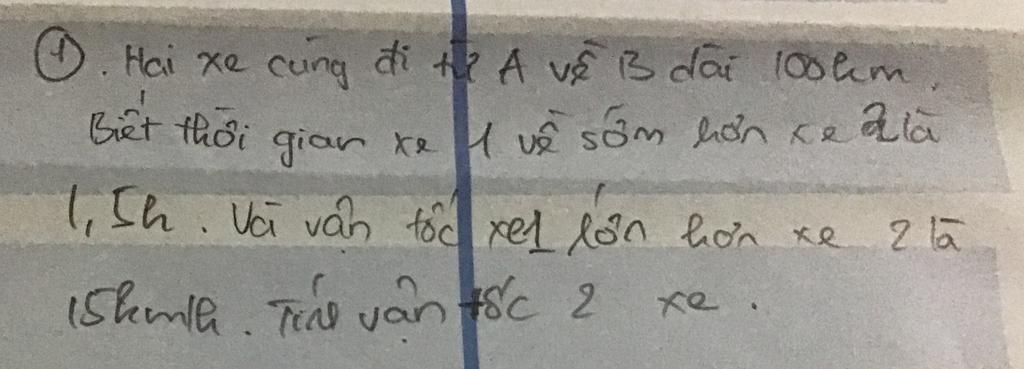 ①. Hai xe cùng đi từ A về B dài 100km.
Biết thời gian xe 1 về sớm hơn xe 2 là
1,5h. Và vận tốc xe1 lớn hơn xe 2 là
15km/h. Tính vận tốc 2 xe.